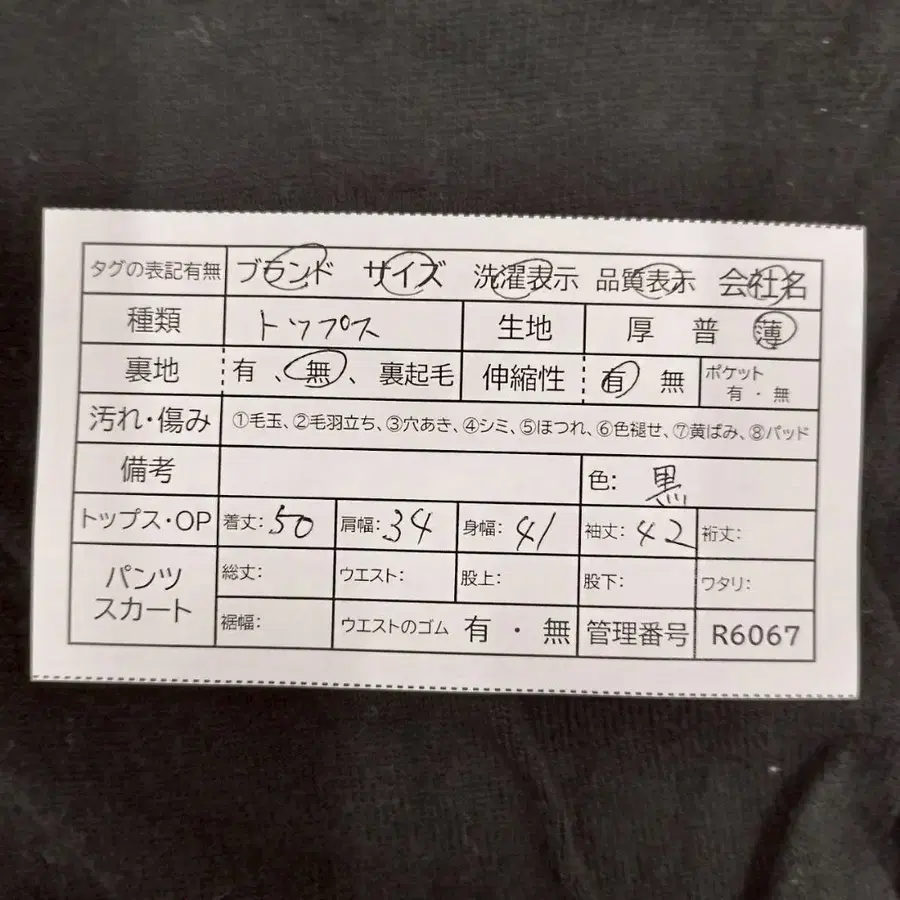 タグの表記有無 ブランド サイズ 洗濯表示 品質表示 会社名
種類 トップス 生地 厚 普 薄
裏地 有 、 無 、 裏起毛 伸縮性 有 無 ポケット 有 ・ 無
汚れ・傷み ①毛玉、②毛羽立ち、③穴あき、④シミ、⑤ほつれ、⑥色褪せ、⑦黄ばみ、⑧パッド
備考 色: 黒
トップス・OP 着丈: 50 肩幅: 34 身幅: 41 袖丈: 42 裄丈:
パンツ スカート 総丈: ウエスト: 股上: 股下: ワタリ:
裾幅: ウエストのゴム 有 ・ 無 管理番号 R6067